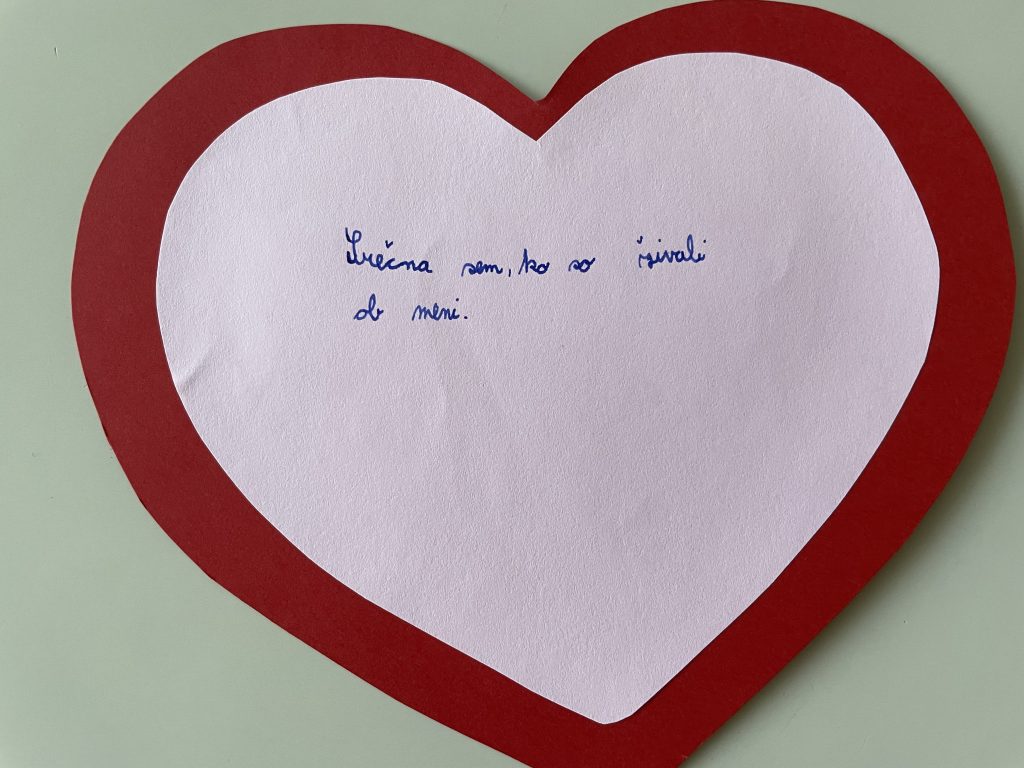 Srečna sem, ko so živali
ob meni.